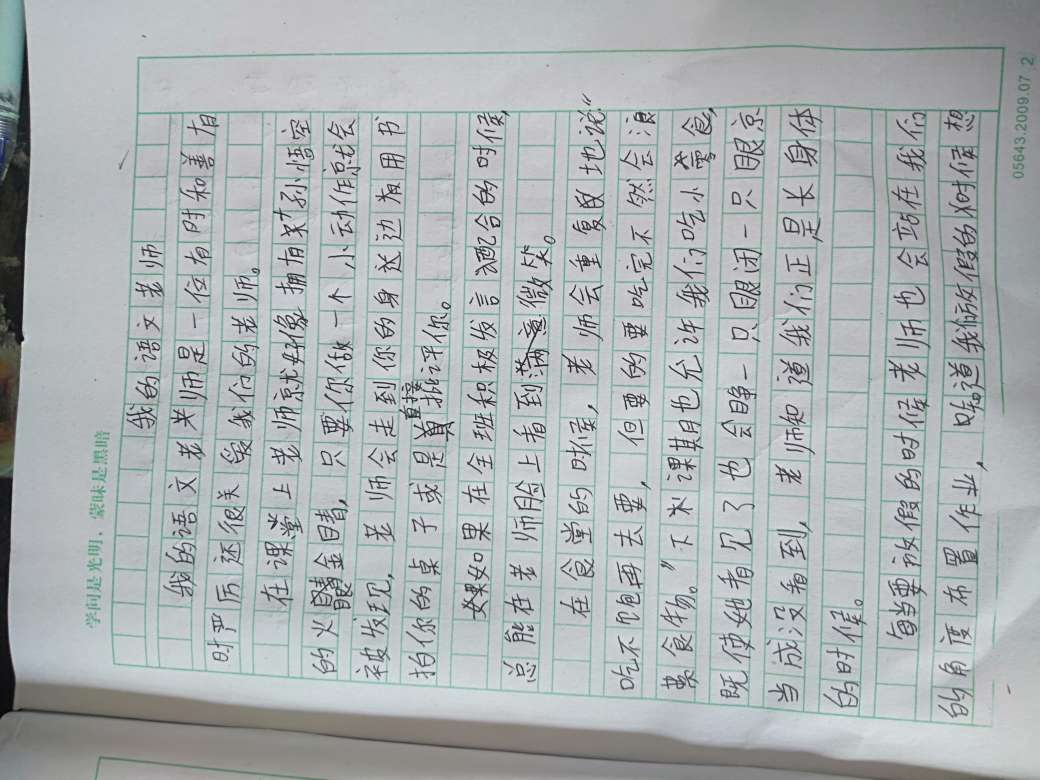 学问是光明，蒙昧是黑暗
我的语文老师
我的语文老师是一位有时和善有
时严厉还很关爱我们的老师。
在课堂上老师就好像拥有关孙悟空
的火眼金睛，只要你做一个小动作就会
被发现，老师会走到你的身送边每用书
拍你的桌子或是直接批评你。
如果在全班积极发言配合的时候，
总能在老师脸上看到满意微笑。
在食堂的时候，老师会重复地说“
吃不饱再去要，但要的要吃完不然会浪
费食物。”下课其也允许我们吃小零食，
既使她看见了也会睁一只眼闭一只眼京
当成没看到，老师知道我们正是长身体
的时候。
每当要放假的时候老师也会站在我们
的角度布置作业，知道我们放假的时候想
05643.2009.07 2